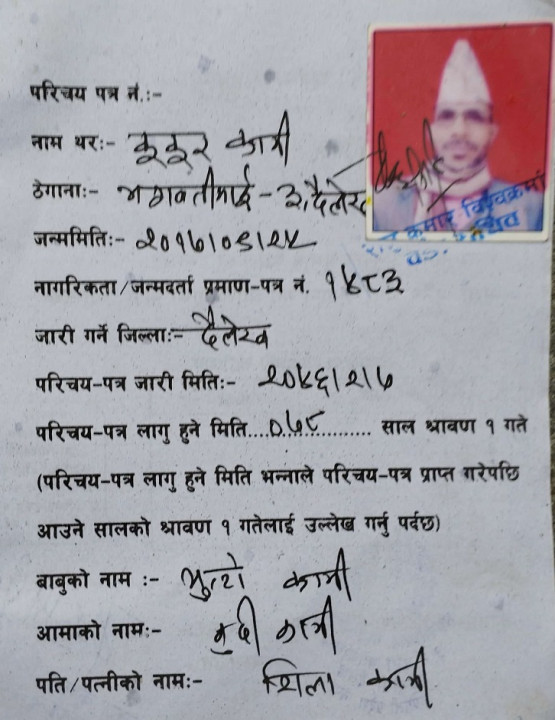 परिचय पत्र नं.:-
नाम थरः- कूकूर कामी
ठेगानाः- भगवतीमाई - ३, दैलेख
जन्ममितिः- २०१७।०८।२४
नागरिकता/जन्मदर्ता प्रमाण-पत्र नं. १४८३
जारी गर्ने जिल्लाः- दैलेख
परिचय-पत्र जारी मितिः- २०४६।२।७
परिचय-पत्र लागु हुने मिति....०७८.............. साल श्रावण १ गते
(परिचय-पत्र लागु हुने मिति भन्नाले परिचय-पत्र प्राप्त गरेपछि
आउने सालको श्रावण १ गतेलाई उल्लेख गर्नु पर्दछ)
बाबुको नाम :- कामी
आमाको नामः- कामी
पति/पत्नीको नामः- शिला कामी
कुमार विश्वकर्मा